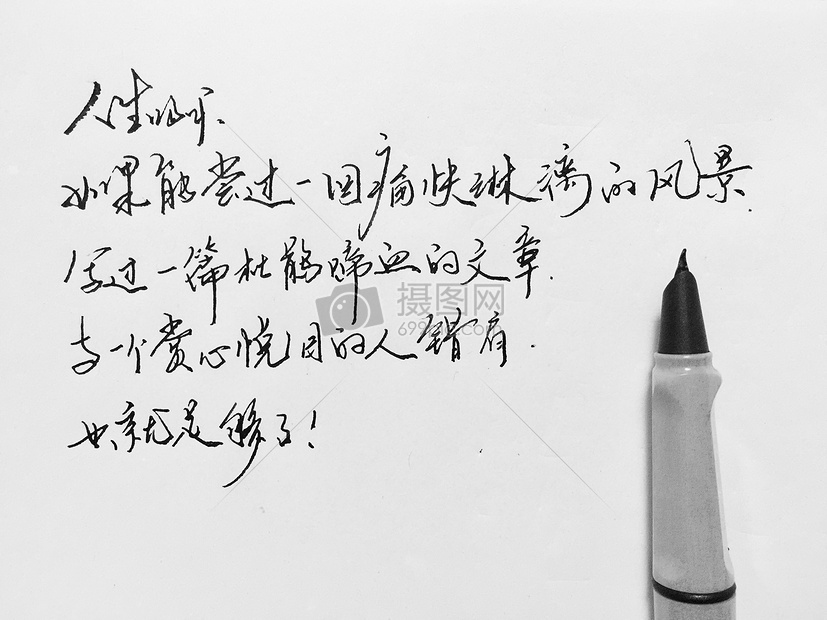 人生啊、
如果能尝过一回痛快淋漓的风景.
写过一篇杜鹃啼血的文章.
与一个赏心悦目的人错肩.
也就足够了!
摄图网